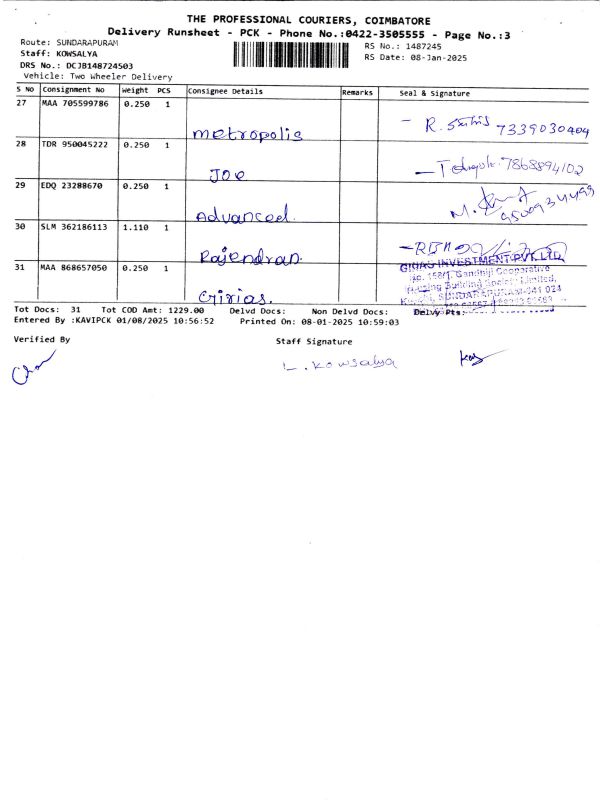 THE PROFESSIONAL COURIERS, COIMBATORE
Delivery Runsheet - PCK - Phone No.:0422-3505555 - Page No.:3
Route: SUNDARAPURAM
Staff: KOWSALYA
DRS No.: DCJB148724503
Vehicle: Two Wheeler Delivery
RS No.: 1487245
RS Date: 08-Jan-2025
S No Consignment No Weight PCS Consignee Details Remarks Seal & Signature
27 MAA 705599786 0.250 1
metropolis - R. 7339030404
28 TDR 950045222 0.250 1
Joe 7868894102
29 EDQ 23288670 0.250 1
Advanced. M.
30 SLM 362186113 1.110 1
Rajendran.
31 MAA 868657050 0.250 1
Girias.
INVESTMENT PVT. LTD.
Gandhiji Cooperative
Building Society Limited,
Tot Docs: 31 Tot COD Amt: 1229.00 Delvd Docs: Non Delvd Docs: Delvy Pts:
Entered By :KAVIPCK 01/08/2025 10:56:52 Printed On: 08-01-2025 10:59:03
Verified By Staff Signature
L. Kowsalya